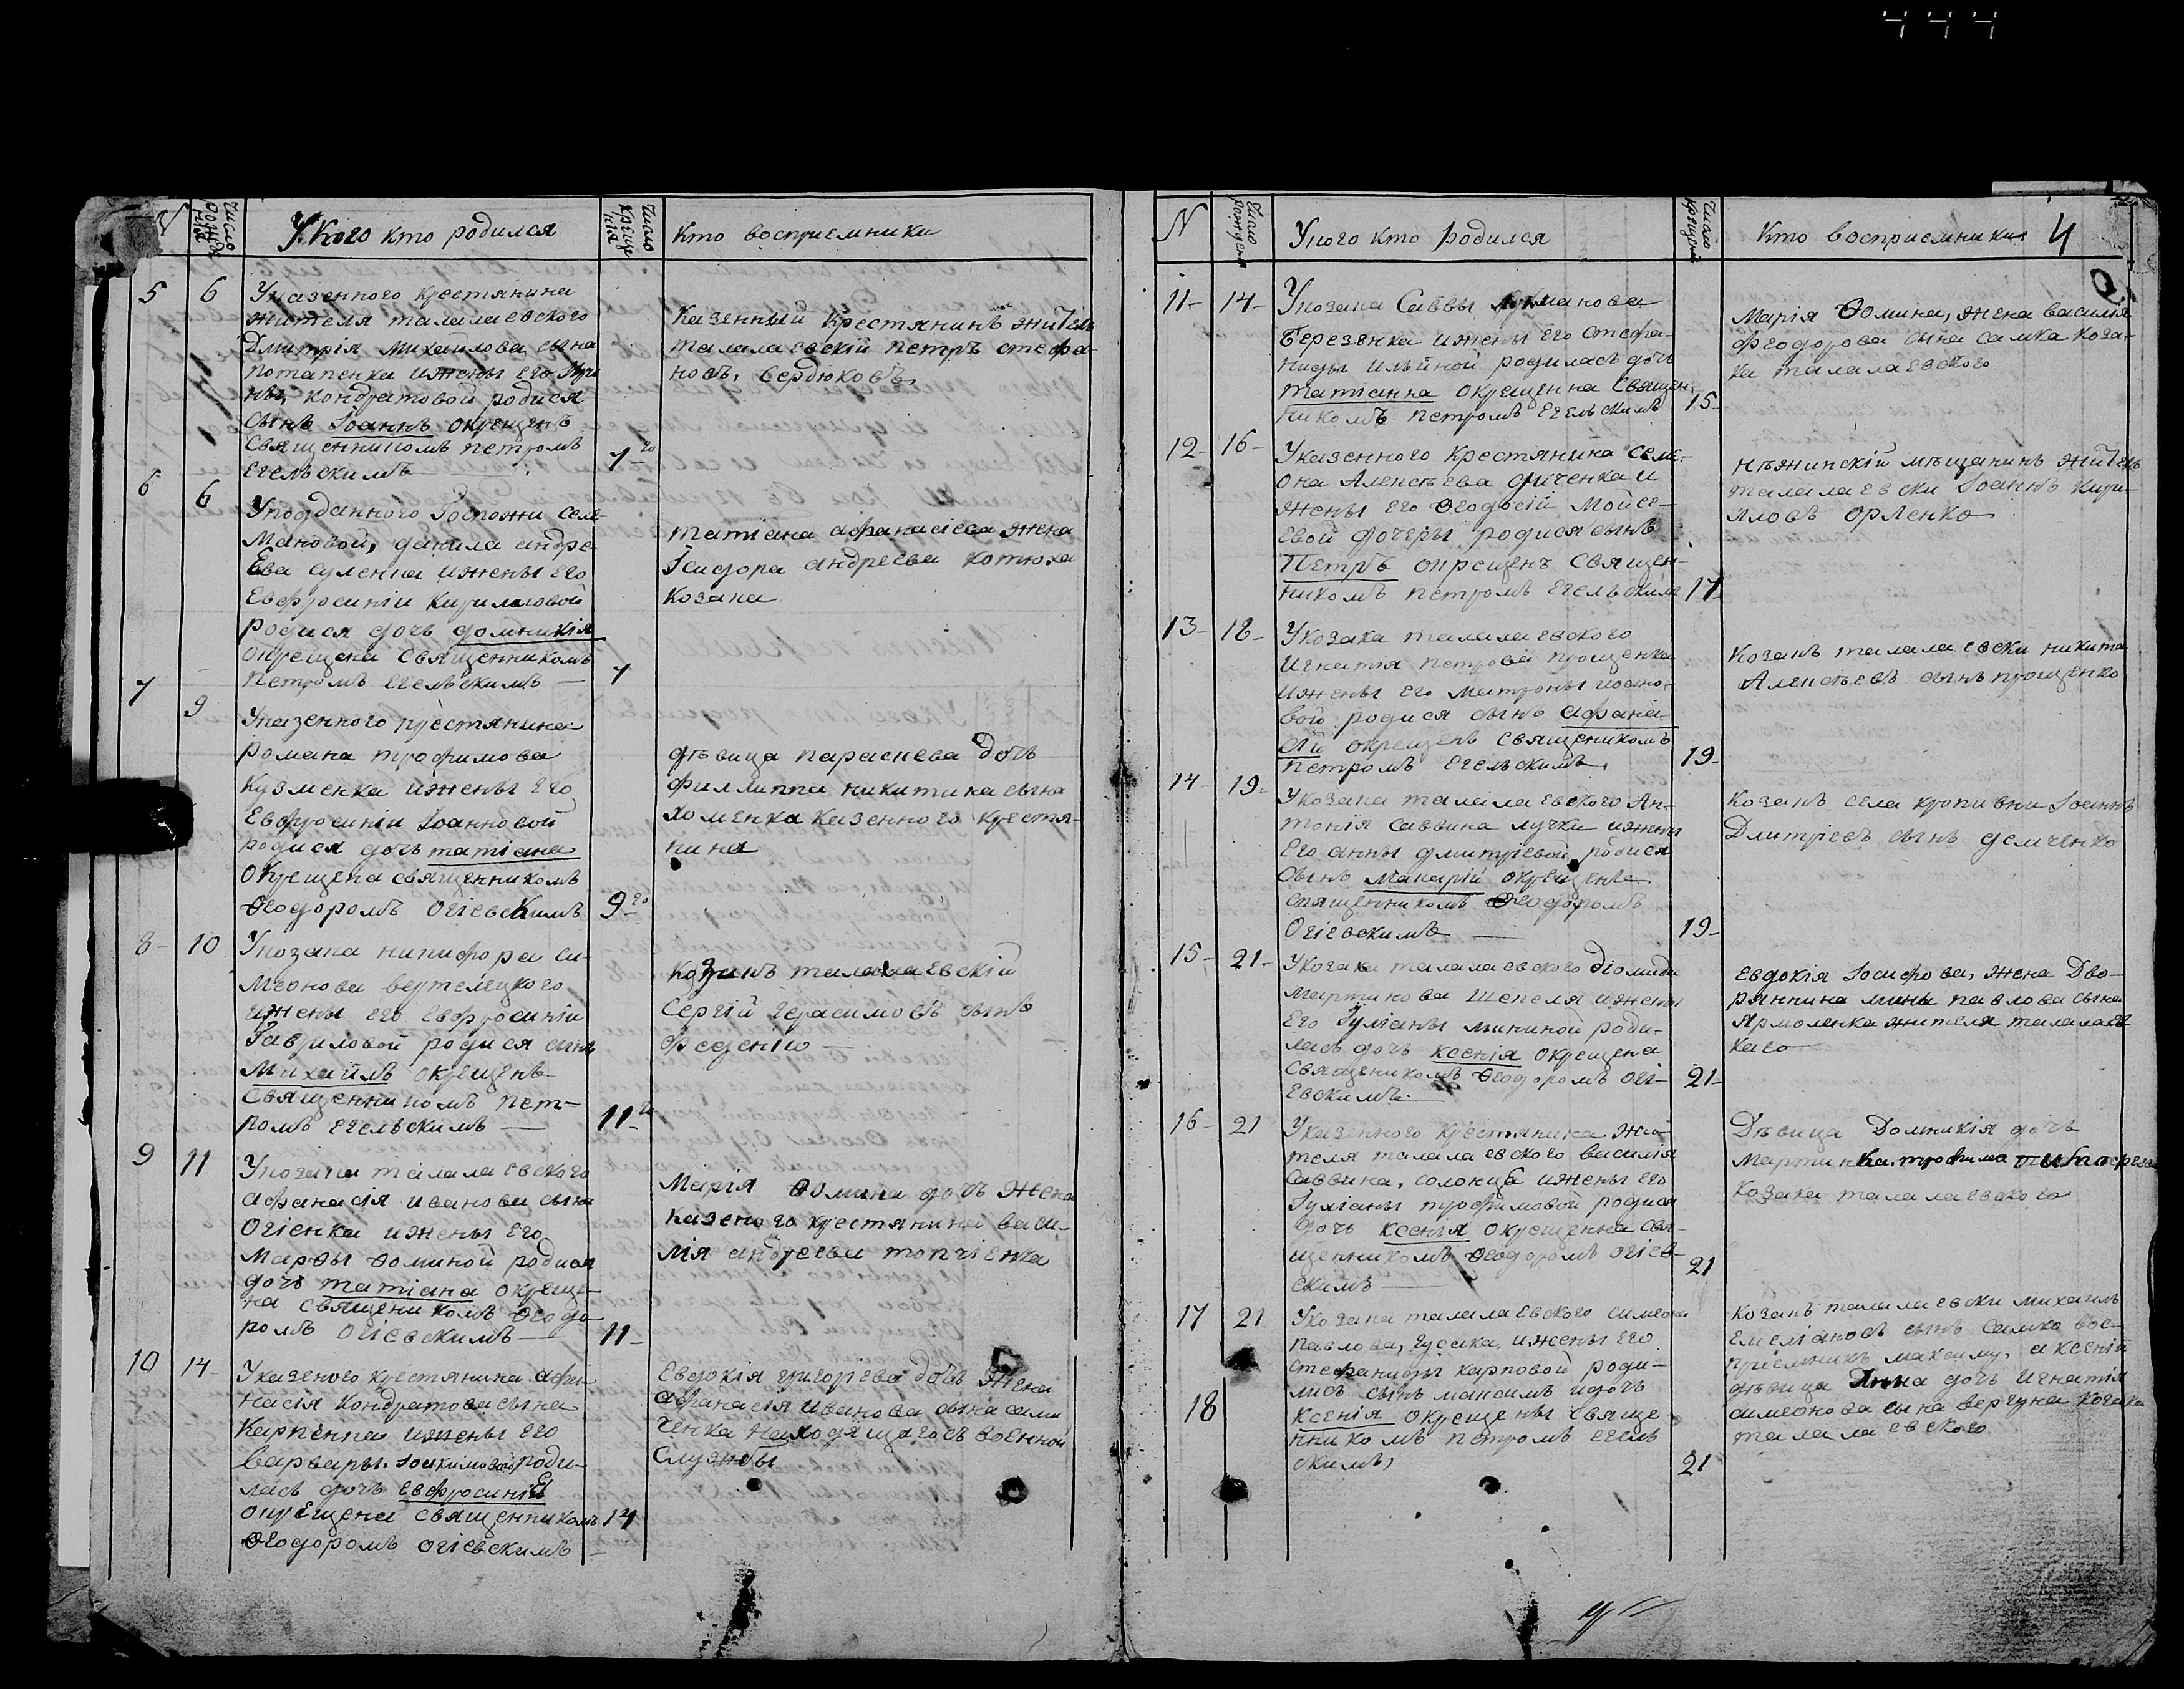 444
N
Число рожденія
У Кого кто родился
Число крещения
Кто восприемники
5
6
Указенного крестянина
жителя талалаевского
Дмитрія Михаилова сына
потапенка ижены его Ири
ны, кондратовой родися
сынъ Іоаннъ окрещенъ
Священникомъ петромъ
Егельскимъ
7го
Казенный крестянинъ житель
талалаевскій петръ стефа-
новъ, Сердюковъ
6
6
Уподданного Госпожи Селе-
Мановой, данила андре
Ева сулении ижены его
Евфросиніи Кириловой
родися дочь домникія
окрещена Священникомъ
петромъ егельскимъ —
7
татіана афанасіева жена
Ісидора андреева Котюха
Козака
7
9
Указенного крестянина
романа трофимова
Кузменка ижены его
Евфросиніи Іоанновой
родися дочь татіана
окрещена священникомъ
Ѳеодоромъ Огіевскимъ
9го
дѣвица параскева дочь
филлиппа никитина сына
хоменка Казенного крестя-
нина
8-
10
Укозака никифора си-
меонова вертелецкого
ижены его евфросиніи
Гавриловой родися сынъ
Михаилъ окрещенъ
Священникомъ пет-
ромъ егельскимъ —
11го
Козакъ талалаевскій
Сергій Герасимовъ сынъ
феденіи —
9
11
Укозака талалаевского
афанасія иванова сына
Огіенка ижены его
Марѳы Ѳоминой родися
дочь татіана окреще-
на священикомъ Ѳеодо-
ромъ Огіевскимъ —
11-
Марія Ѳомина дочь жена
Казеного крестянина васи-
лія андреева топчіенка
10
14-
Указеного крестянина афа-
насія Кондратова сына
Карпенка ижены его
варвары Іоакимовой роди-
лась дочь евфросинія
окрещена священникомъ
Ѳеодоромъ огіевскимъ —
14
Евдокія григоріева дочь жена
афанасія иванова сына сами
ченка находящагось военной
Службы
N
Число рожденія
Укого кто родился
Число крещеній
Кто восприемники
4
11-
14-
Укозака Саввы
Березенка ижены его стефа-
ниды ильиной родилась дочь
татіанна окрещенна Священ-
никомъ петромъ егельскимъ
15-
Марія Ѳомина, жена василія
феодорова сына самка Коза-
ка талалаевского
12-
16-
Указенного крестянина семе-
она Алексѣева фиченка и
жены его Ѳеодосій Мойсе-
евой дочеры родися сынъ
Петръ окрещенъ Священ-
никомъ петромъ егельскимъ
17
нѣжинскій мѣщанинъ житель
талалаевски Іоаннъ Кири-
ловъ Орленко
13-
18-
Укозака талалаевского
игнатія петрова прощенка
ижены его матроны иоано-
вой родися сынъ афана-
сій окрещенъ священикомъ
петромъ егельскимъ.
19-
Козакъ талалаевски никита
Алексѣевъ сынъ прощенко
14-
19-
Укозака талалаевского Ан-
тонія саввина лучки ижены
его анны дмитріевой родися
сынъ макарій окрещенъ
священникомъ Ѳеодоромъ
Огіевскимъ —
19-
Козакъ села кропивни Іоаннъ
Дмитріевъ сынъ демченко
15-
21-
Укозака талалаевского діомида
мартинова шепеля ижены
его Іуліаны мининой роди-
лась дочь ксенія окрещена
священикомъ Ѳеодоромъ огі-
евскимъ.
21-
Евдокія Іосифова, жена Дво-
рянина мины павлова сына
Ярмоленка жителя талалаев
каго
16-
21
Указенного крестянина жи-
теля талалаевского василія
саввина, солонца ижены его
Іуліаны трофимовой родися
дочь ксенія окрещенна свя-
щенникомъ Ѳеодоромъ огіев-
скимъ —
21
Дѣвица Домникія дочь
Мартинка, трофима
Козака талалаевского
17
21
Укозака талалаевского симеона
павлова, гусака, ижены его
стефаниды карповой роди-
лись сынъ максимъ идочь
18
ксенія окрещены свяще
нникомъ петромъ егель
скимъ,
21
Козакъ талалаевски михаилъ
емеліановъ сынъ самко вос-
пріемникъ максиму, а ксеніи
дѣвица Анна дочь игнатія
симеонова сына вергуна козака
талалаевского